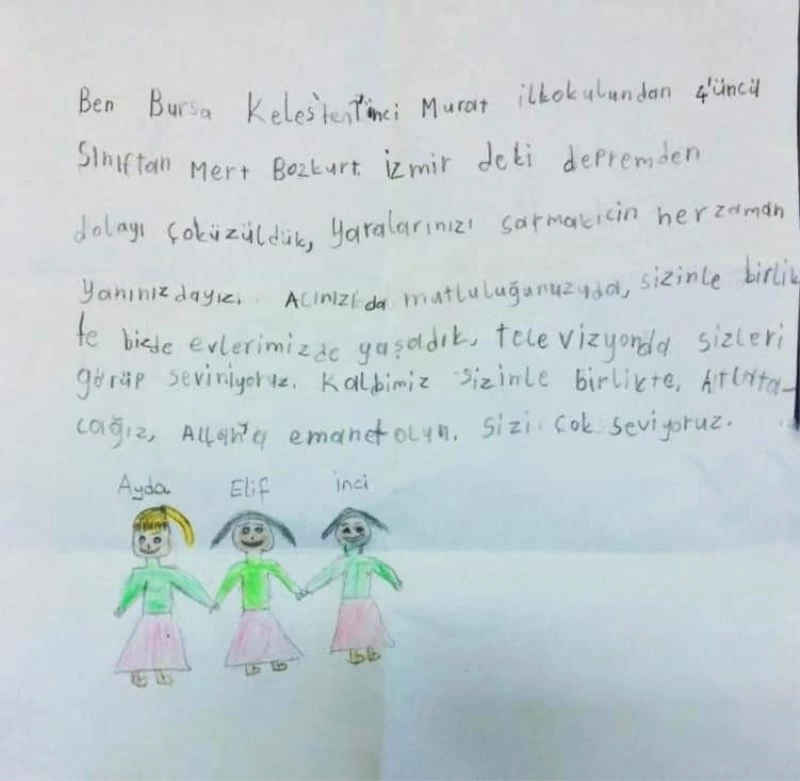 Ben Bursa Keles'ten 1'inci Murat ilkokulundan 4'üncü
Sınıftan Mert Bozkurt. izmir deki depremden
dolayı çoküzüldük, Yaralarınızı sarmakicin herzaman
Yanınızdayız. Acınızıda mutluluğunuzuda, sizinle birlik
te bizde evlerimizde yaşadık, televizyonda sizleri
görüp seviniyoruz. Kalbimiz sizinle birlikte, Atlata-
cağız, Allah'a emanet olun. sizi çok seviyoruz.
Ayda Elif inci